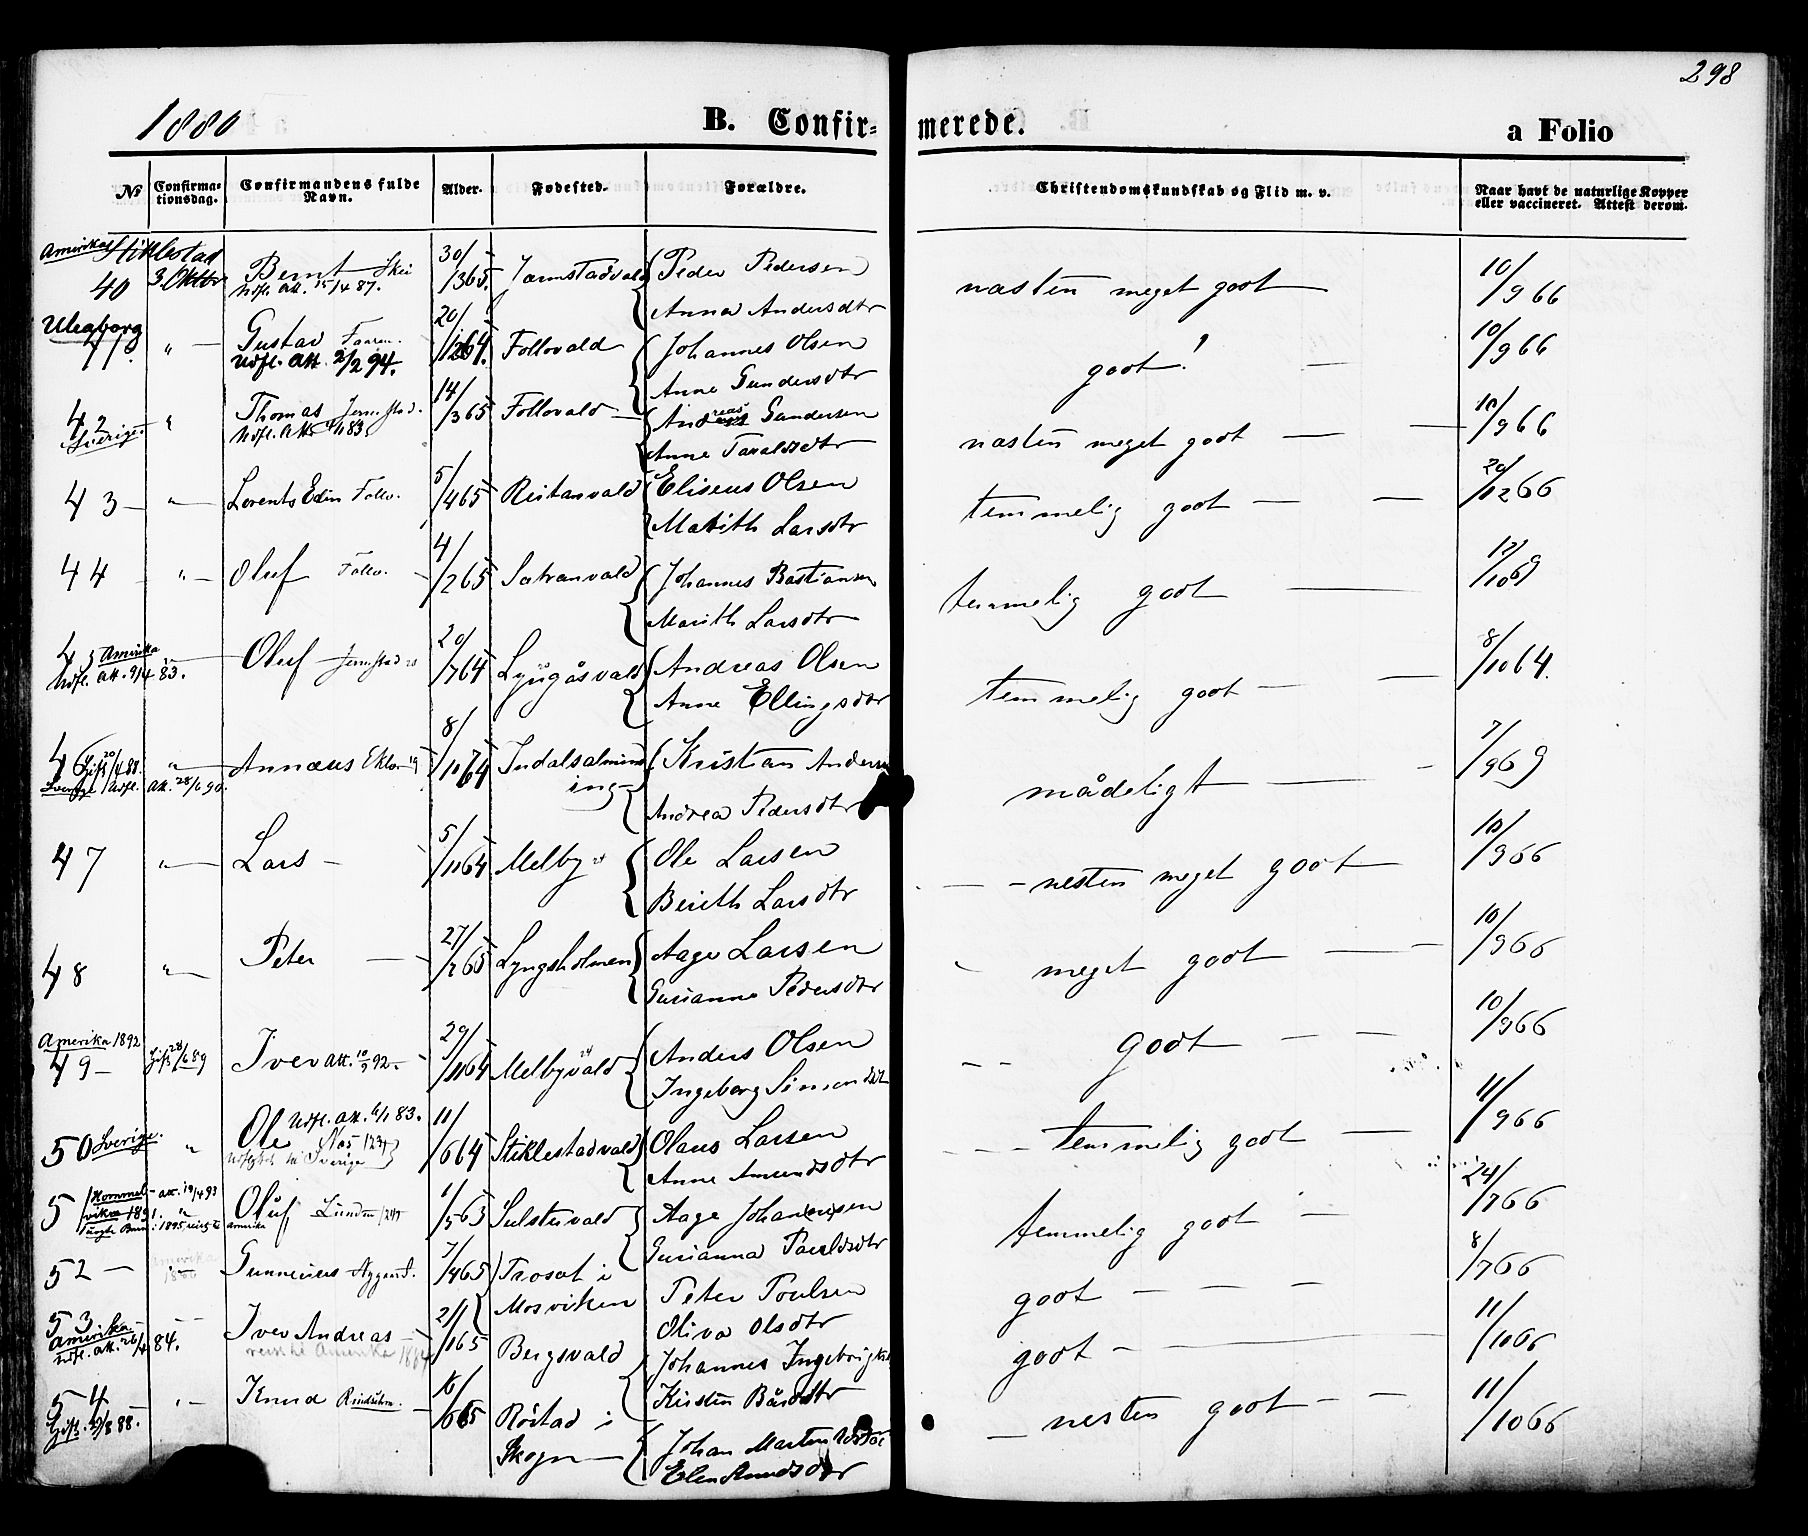 298
1880
B. Confir-
merede.
a Folio
No
Confirma-
tionsdag.
Confirmandens fulde
Navn.
Alder.
Fødested.
Forældre.
Christendomskundskab og Flid m. v.
Naar havt de naturlige Kopper
eller vaccineret. Attest derom.
Amerika Stiklestad
40 3 Oktbr Bernt Skei 30/3 65. Jermstadvald Peder Pedersen næsten meget godt 10/9 66
Udfl. Att. 15/4 87. Anna Andersdtr
Uleaborg
41 " Gustav Faaren. 20/12 64. Follovald Johannes Olsen godt! 10/9 66
Udfl. Att. 2/2 94. Anne Gundersdtr
42 " Thomas Jermstad. 14/3 65 Follovald Andreas Gundersen næsten meget godt 10/9 66
Sverige Udfl. Att. 83 Anne Taraldsdtr
43 " Lorents Edin Follo. 5/4 65 Reitanvald Eliseus Olsen temmelig godt 20/12 66
Marith Larsdtr
44 " Oluf Follo. 4/2 65 Johannes Bastiansen temmelig godt 12/10 69
Marith Larsdtr
45 Amerika " Oluf Jermstad 20/7 64 Lyngåsvald Andreas Olsen temmelig godt 8/10 64.
Udfl. Att. 9/4 83. Anne Ellingsdtr
46 Gift 20/4 88. " Annæus Eklo 8/10 64 Indalsalminding Kristian Andersen mådeligt 7/9 69
Sverige Udfl. Att. 28/6 90. Andrea Pedersdtr
47 " Lars 5/11 64 Melby Ole Larsen nesten meget godt 10/9 66
Berith Larsdtr
48 " Peter 27/2 65 Lyngsholmen Aage Larsen meget godt 10/9 66
Gurianna Pedersdtr
Amerika 1892
49 Gift 28/6 89 Iver Att. 10/9 92. 29/11 64 Melbyvald Anders Olsen godt 10/9 66
Ingeborg Simonsdtr
50 Sverige. " Ole Udfl. Att. 6/1 83. 11/6 64 Stiklestadvald Olaus Larsen temmelig godt 11/9 66
Udflyttet til Sverige Anne Amundsdtr
51 Hommelvika 1891. Att. 19/4 93 " Oluf Lunden 1/5 63 Sulstuvald Aage Johansen temmelig godt 24/7 66
Amerika Gurianna Pauldsdtr
52 Gunnerius Nygaard. 7/4 65 Trosat i Peter Poulsen godt 8/7 66
Mosviken Oliva Olsdtr
53 Iver Andreas 2/1 65 Bergsvald Johannes Ingebrigts godt 11/10 66
Amerika. Udfl. Att. 26/4 84. reist til Amerika Kirsten Bårdsdtr
54 " Knud Rindsem. 16/6 65 Röstad i Johan Marten nesten godt 11/10 66
Gift. 88. Skogn Elen Amundsdtr